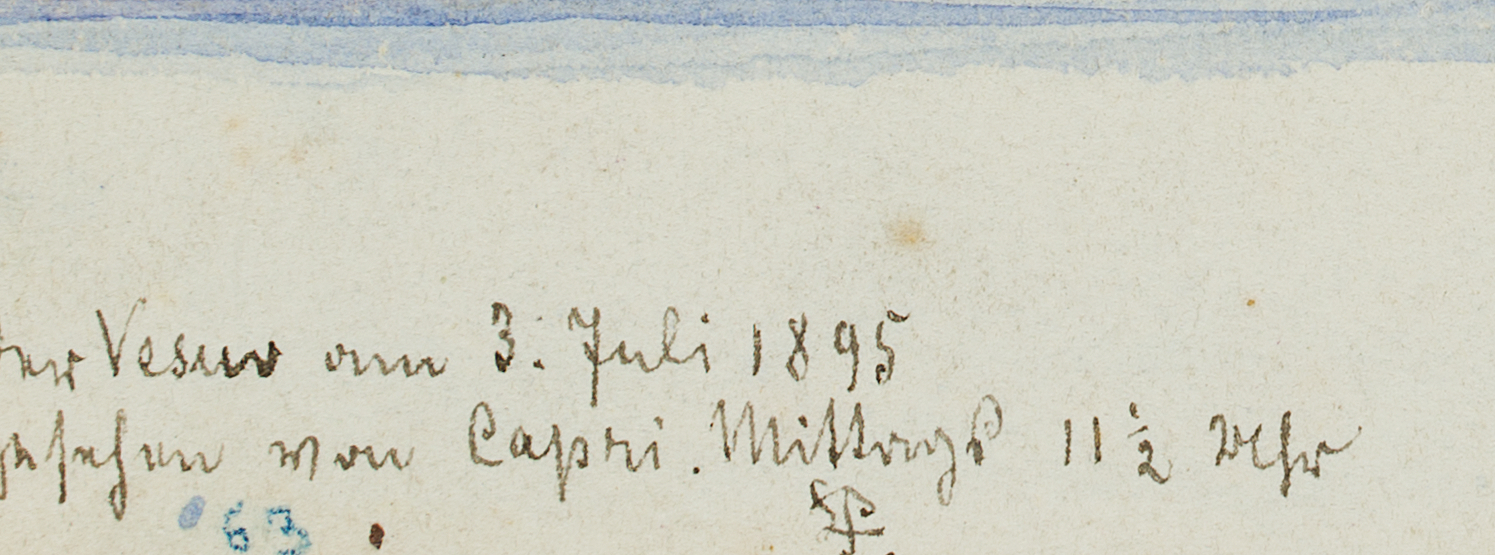 der Vesuv am 3. Juli 1895
gesehen von Capri. Mittags 11 1/2 Uhr
63